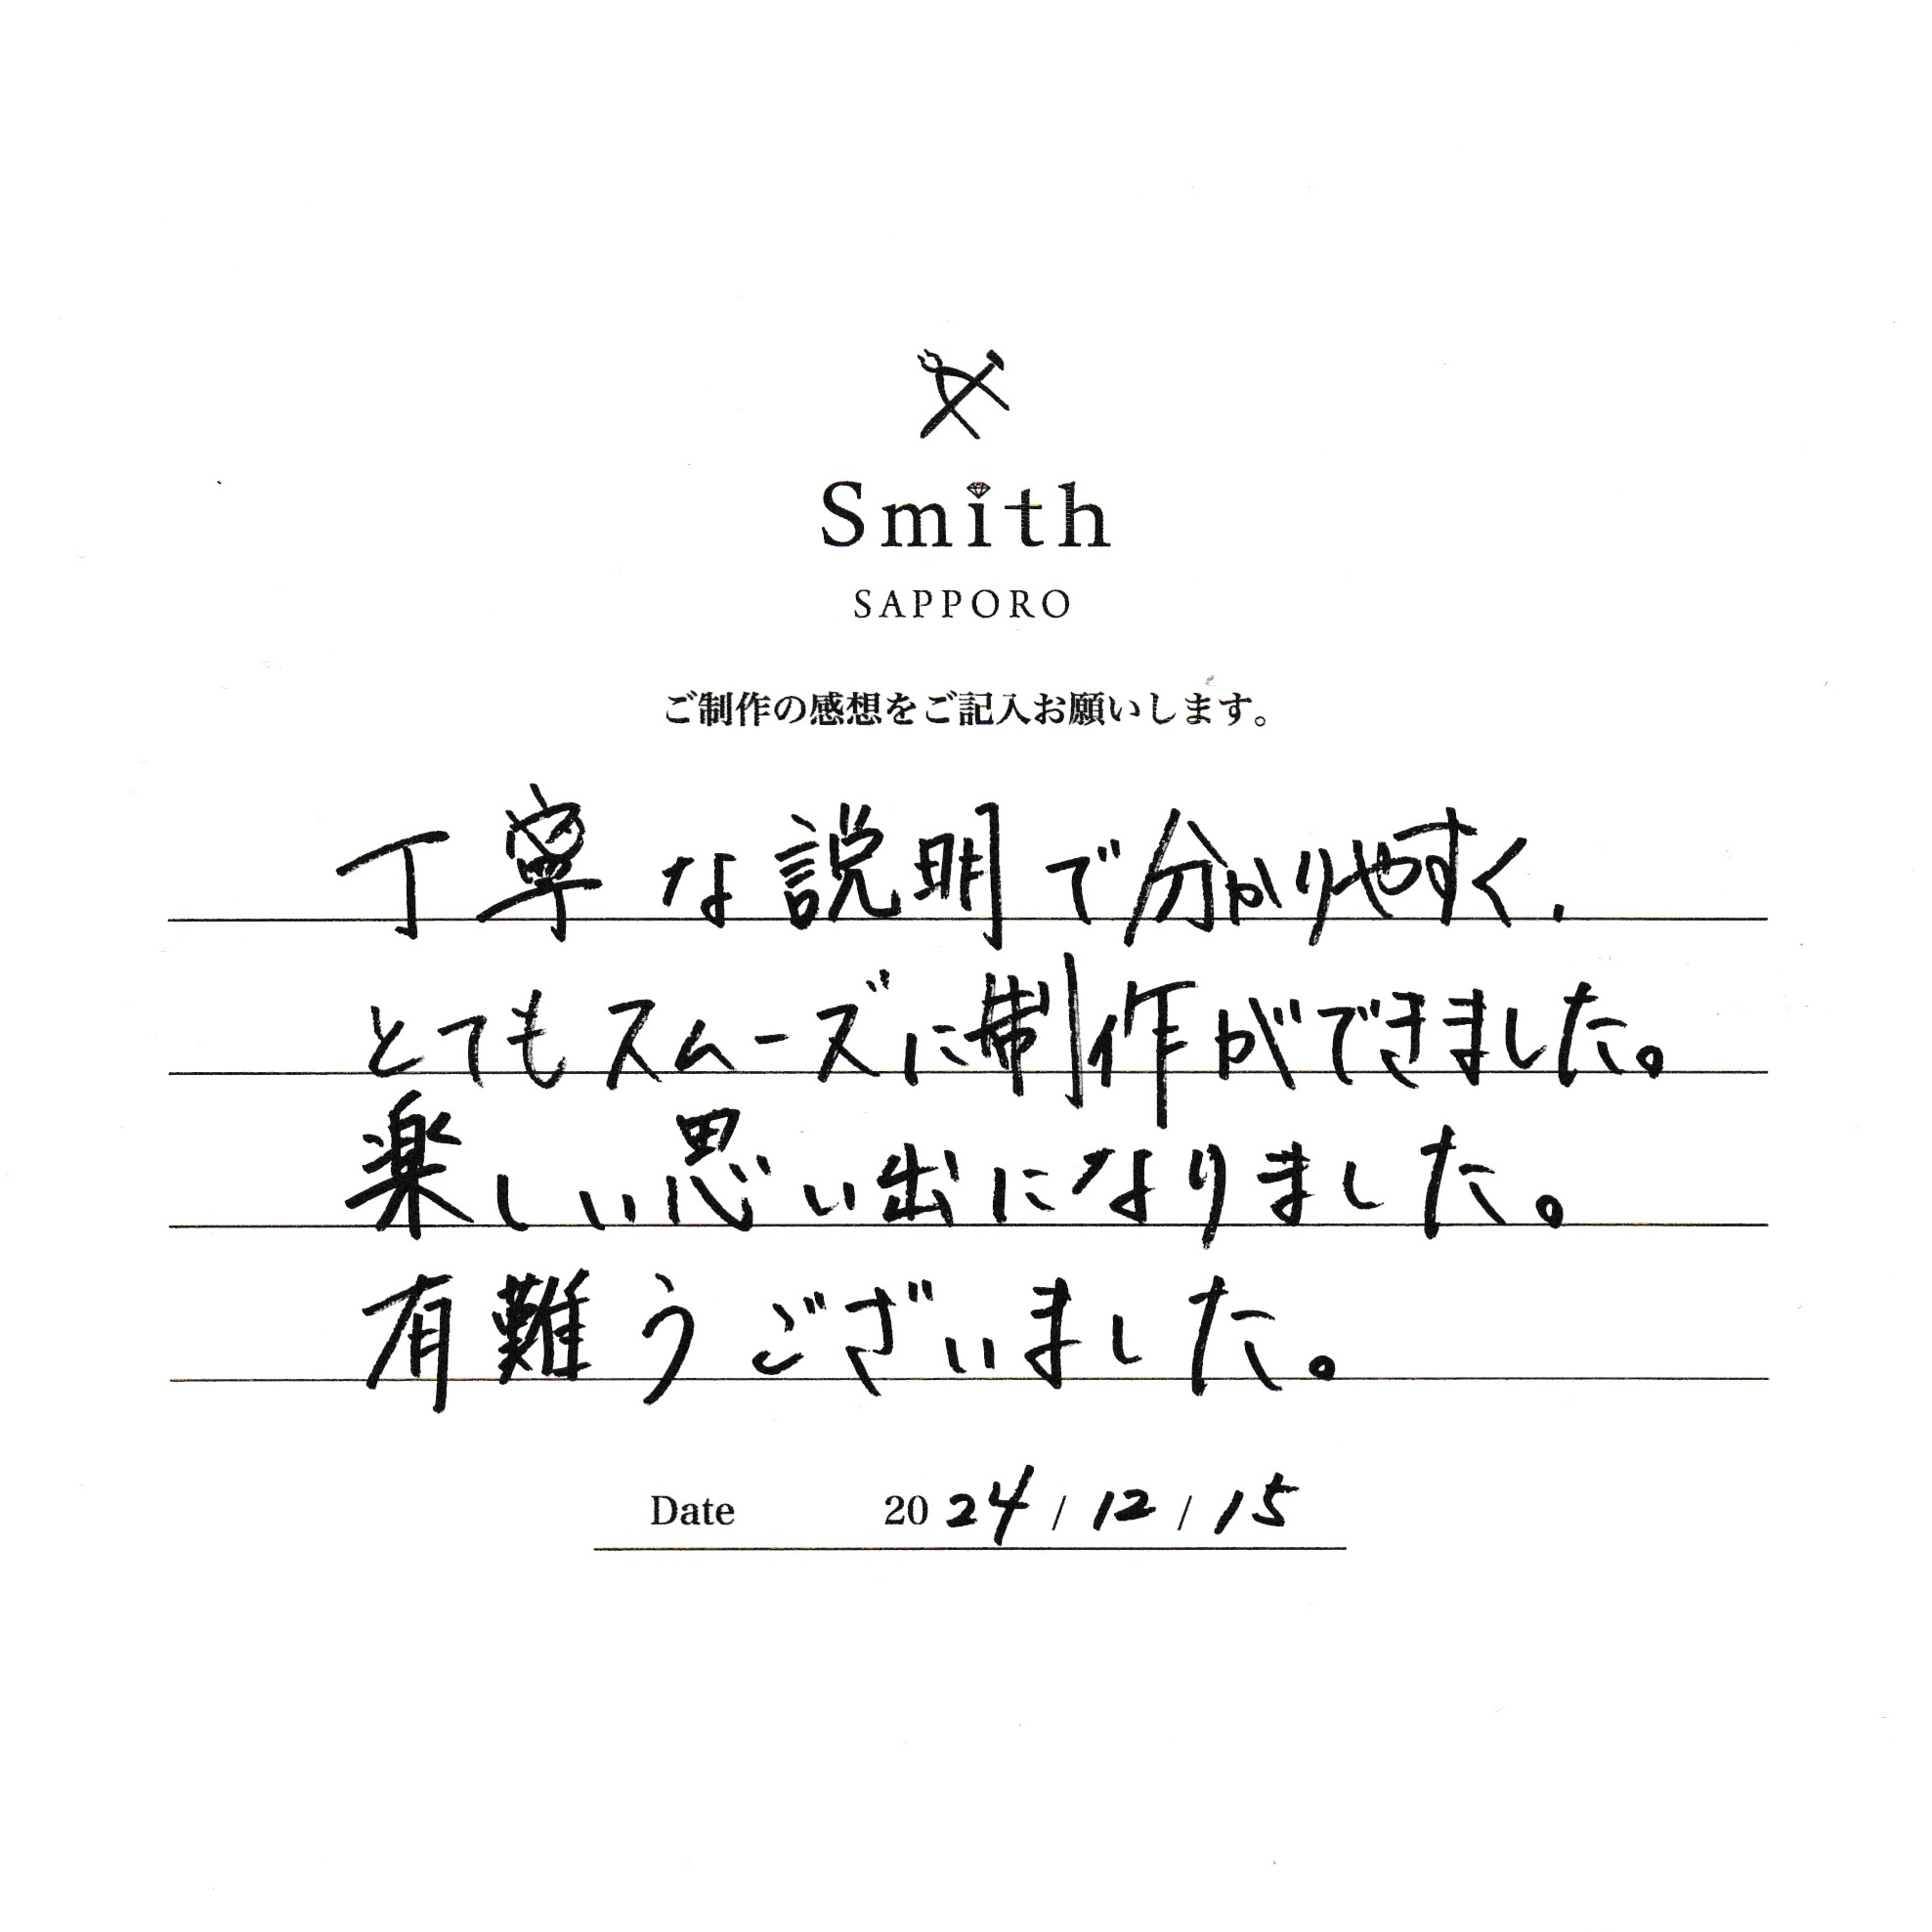 Smith
SAPPORO
ご制作の感想をご記入お願いします。
丁寧な説明で分かりやすく、
とてもスムーズに制作ができました。
楽しい思い出になりました。
有難うございました。
Date 2024/12/15